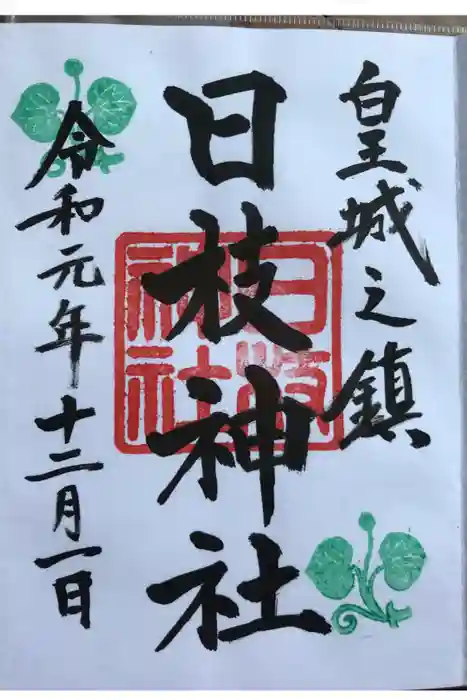 皇城之鎮
日枝神社
日枝神社
令和元年十二月一日